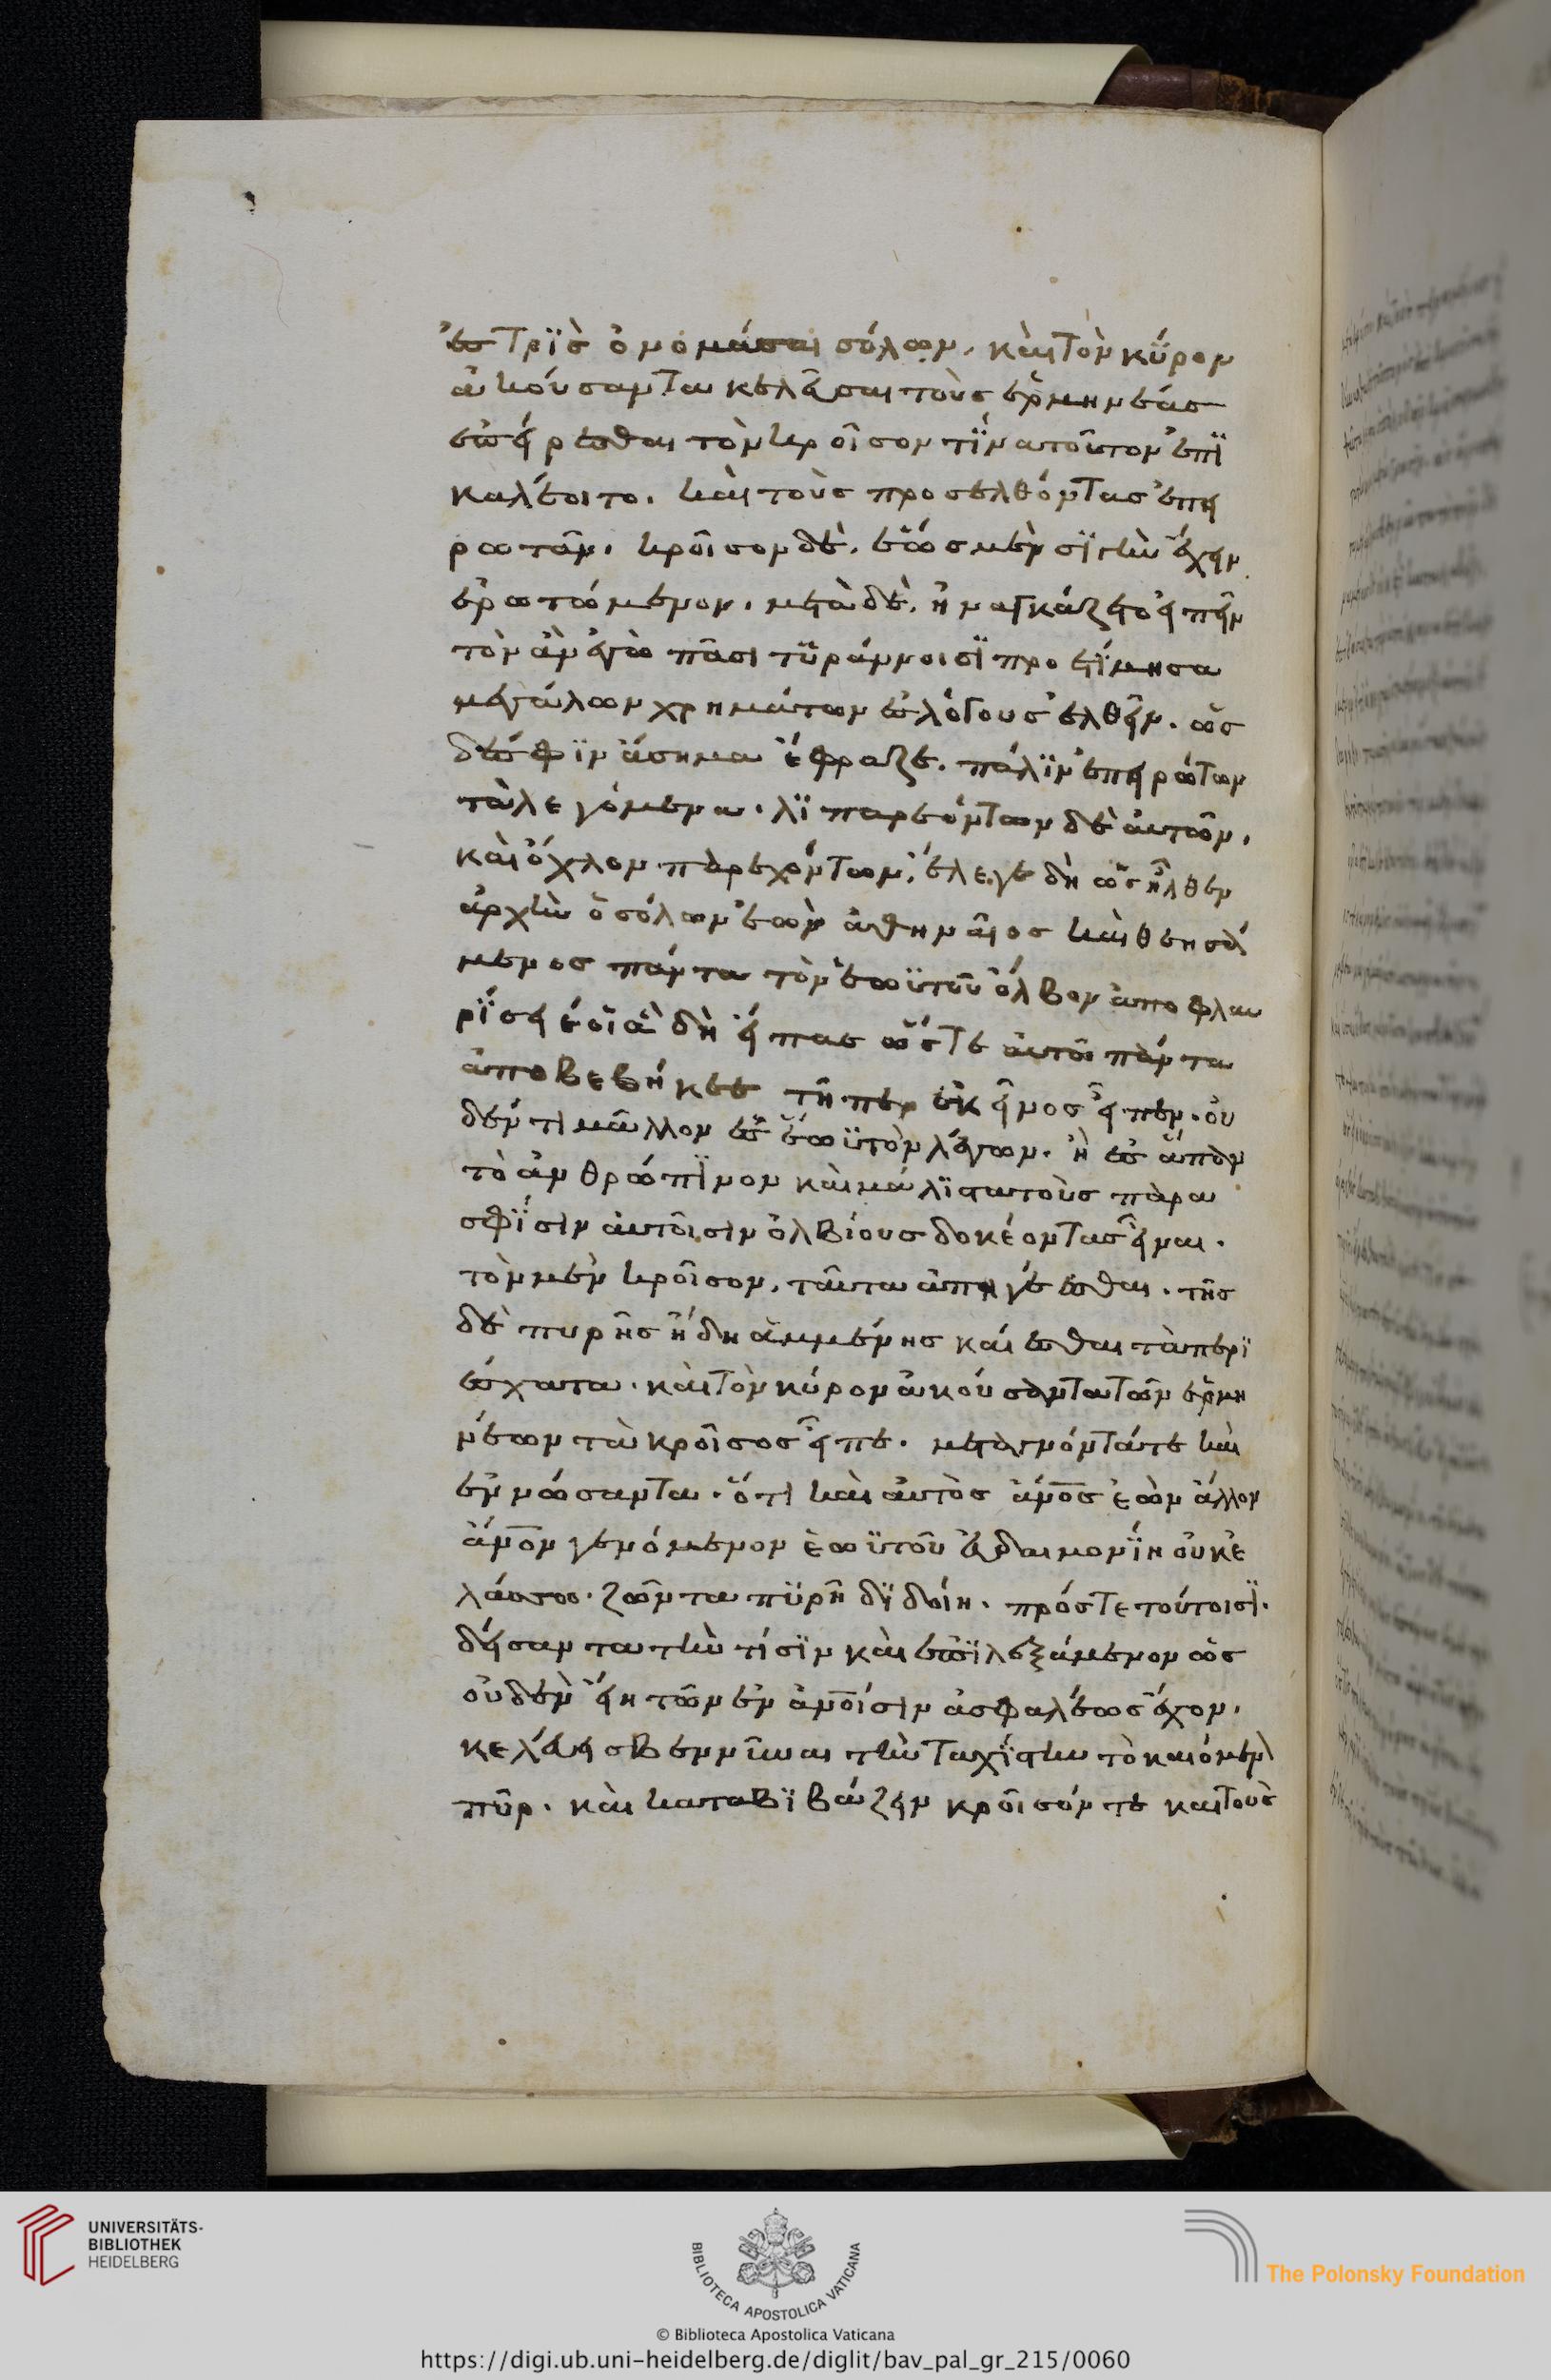 ἐς τρὶς ὀνομάσαι σόλων. καὶ τὸν κύρον
ἀκούσαντα κελεῦσαι τοὺς ἑρμηνέας
ἐπείρεσθαι τὸν κροῖσον τίνα τοῦτον ἐπι
καλέοιτο. καὶ τοὺς προσελθόντας ἐπει
ρωτᾶν. κροῖσον δὲ, ἕως μὲν σιγὴν ἔχειν
ἐρωτώμενον. μετὰ δὲ, ἠναγκάζετο εἰπεῖν
τὸν ἂν ἐγὼ πᾶσι τυράννοισι προετίμησα
μεγάλων χρημάτων ἐς λόγους ἐλθεῖν. ὥς
δέ σφιν ἄσημα ἔφραζε. πάλιν ἐπειρώτων
τὰ λεγόμενα. λιπαρεόντων δὲ αὐτῶν.
καὶ ὄχλον παρεχόντων, ἔλεγε δὴ ὡς ἦλθεν
ἀρχὴν ὁ σόλων ἐὼν ἀθηναῖος καὶ θεησά
μενος πάντα τὸν ἑωϋτοῦ ὄλβον ἀποφλαυ
ρίσειε οἷα δὴ εἴπας ὥστε αὐτῷ πάντα
ἀποβεβήκεε τῇπερ ἐκεῖνος εἶπεν. οὐ
δέν τι μᾶλλον ἐς ἑωϋτὸν λέγων. ἢ ἐς ἅπαν
τὸ ἀνθρώπινον καὶ μάλιστα τοὺς παρὰ
σφίσιν αὐτοῖσιν ὀλβίους δοκέοντας εἶναι.
τὸν μὲν κροῖσον, ταῦτα ἀπηγέεσθαι. τῆς
δὲ πυρῆς ἤδη ἁμμένης καίεσθαι τὰ περι
έσχατα. καὶ τὸν κύρον ἀκούσαντα τῶν ἑρμη
νέων τὰ κροῖσος εἶπε. μεταγνόντα τε καὶ
ἐννώσαντα. ὅτι καὶ αὐτὸς ἄν̅ο̅ς ἐὼν ἄλλον
ἄν̅ο̅ν γενόμενον ἑωϋτοῦ εὐδαιμονίη οὐκ ἐ
λάσσω. ζῶντα πυρῇ διδοίη. πρός τε τούτοισι.
δείσαντα τὴν τίσιν καὶ ἐπιλεξάμενον ὡς
οὐδὲν εἴη τῶν ἐν ἀν̅ο̅ίσιν ἀσφαλέως ἔχον.
κελεύει σβεννῦναι τὴν ταχίστην τὸ καιόμεν
πῦρ. καὶ καταβιβάζειν κροῖσόν τε καὶ τοὺς
UNIVERSITÄTS-
BIBLIOTHEK
HEIDELBERG
BIBLIOTECA APOSTOLICA VATICANA
The Polonsky Foundation
© Biblioteca Apostolica Vaticana
https://digi.ub.uni-heidelberg.de/diglit/bav_pal_gr_215/0060